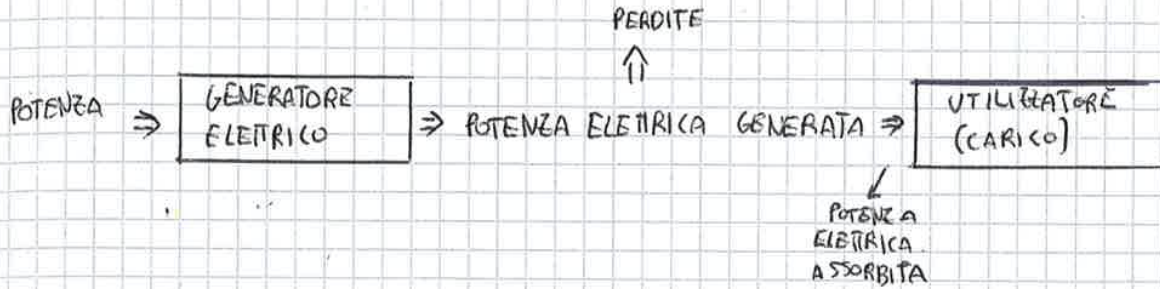 PERDITE
POTENZA ⇒ GENERATORE
ELETTRICO
⇒ POTENZA ELETTRICA GENERATA ⇒
UTILIZZATORE
(CARICO)
POTENZA
ELETTRICA
ASSORBITA